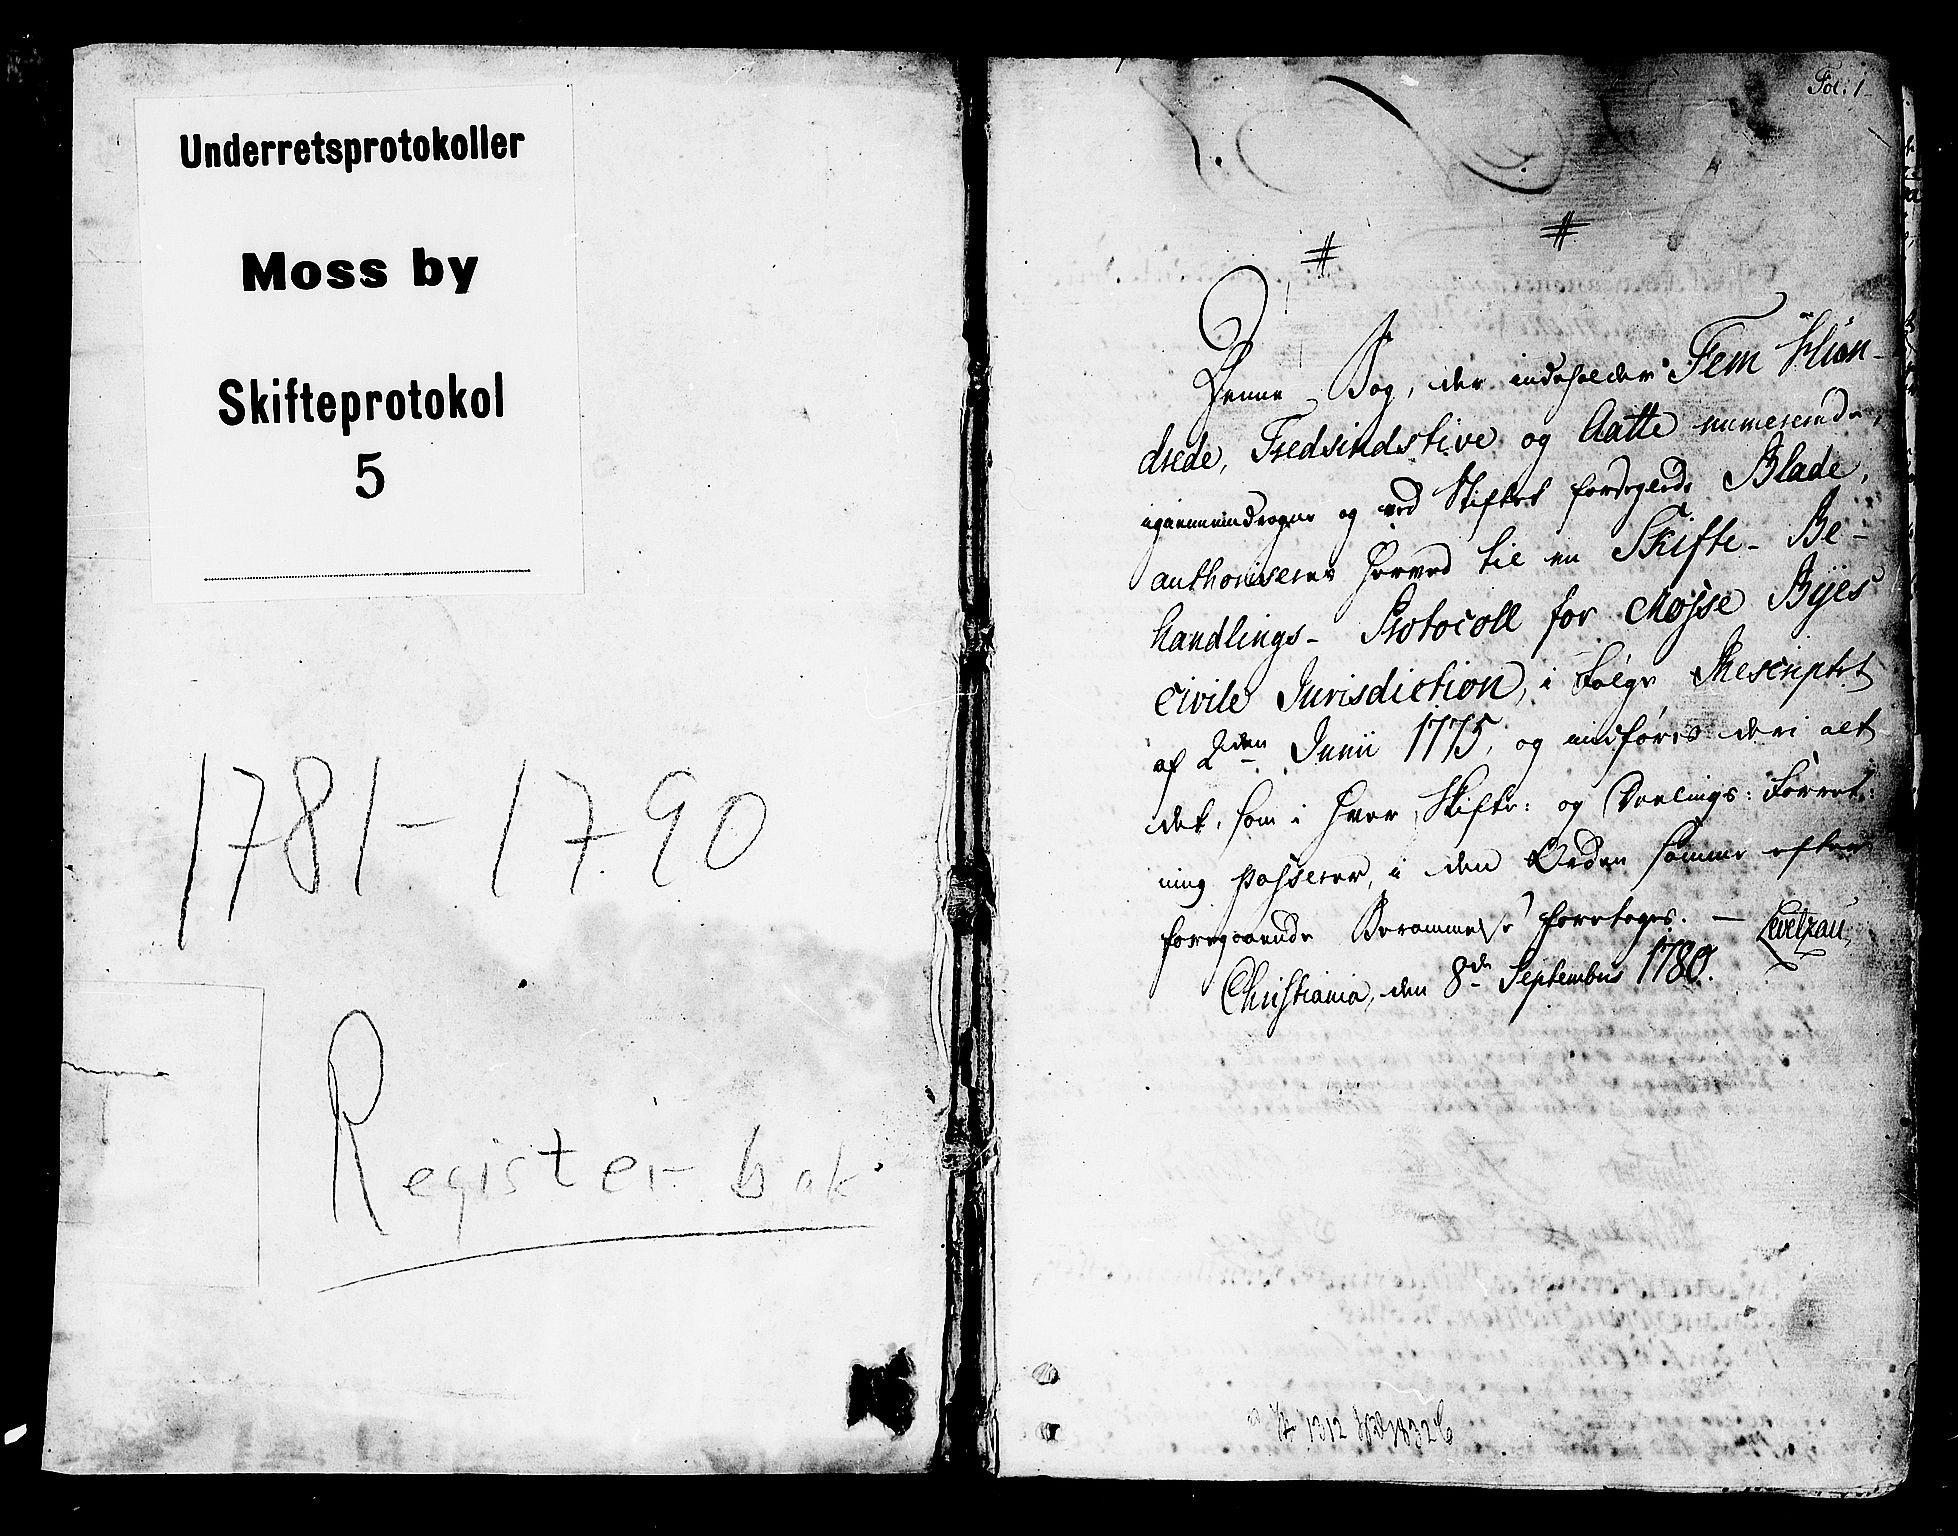 Underretsprotokoller
Moss by
Skifteprotokol
5
1781-1790
Register bak
Fol: 1
Denne Bog, der indeholder Fem Hun-
drede, Tredsindstive og Aatte numererede,
igiennemdragne og ved Stiftet forseglede Blade,
authoriseres herved til en Skifte-Be-
handlings-Protocoll for Mosse Byes
civile Jurisdiction, i Følge Rescriptet
af 2den Junii 1775, og indføres deri alt
det, som i hver Skifte: og Deelings: Forret:
ning passerer, i den Orden samme efter
foregaaende Berammelse foretages. — Levetzau
Christiania, den 8de September 1780.